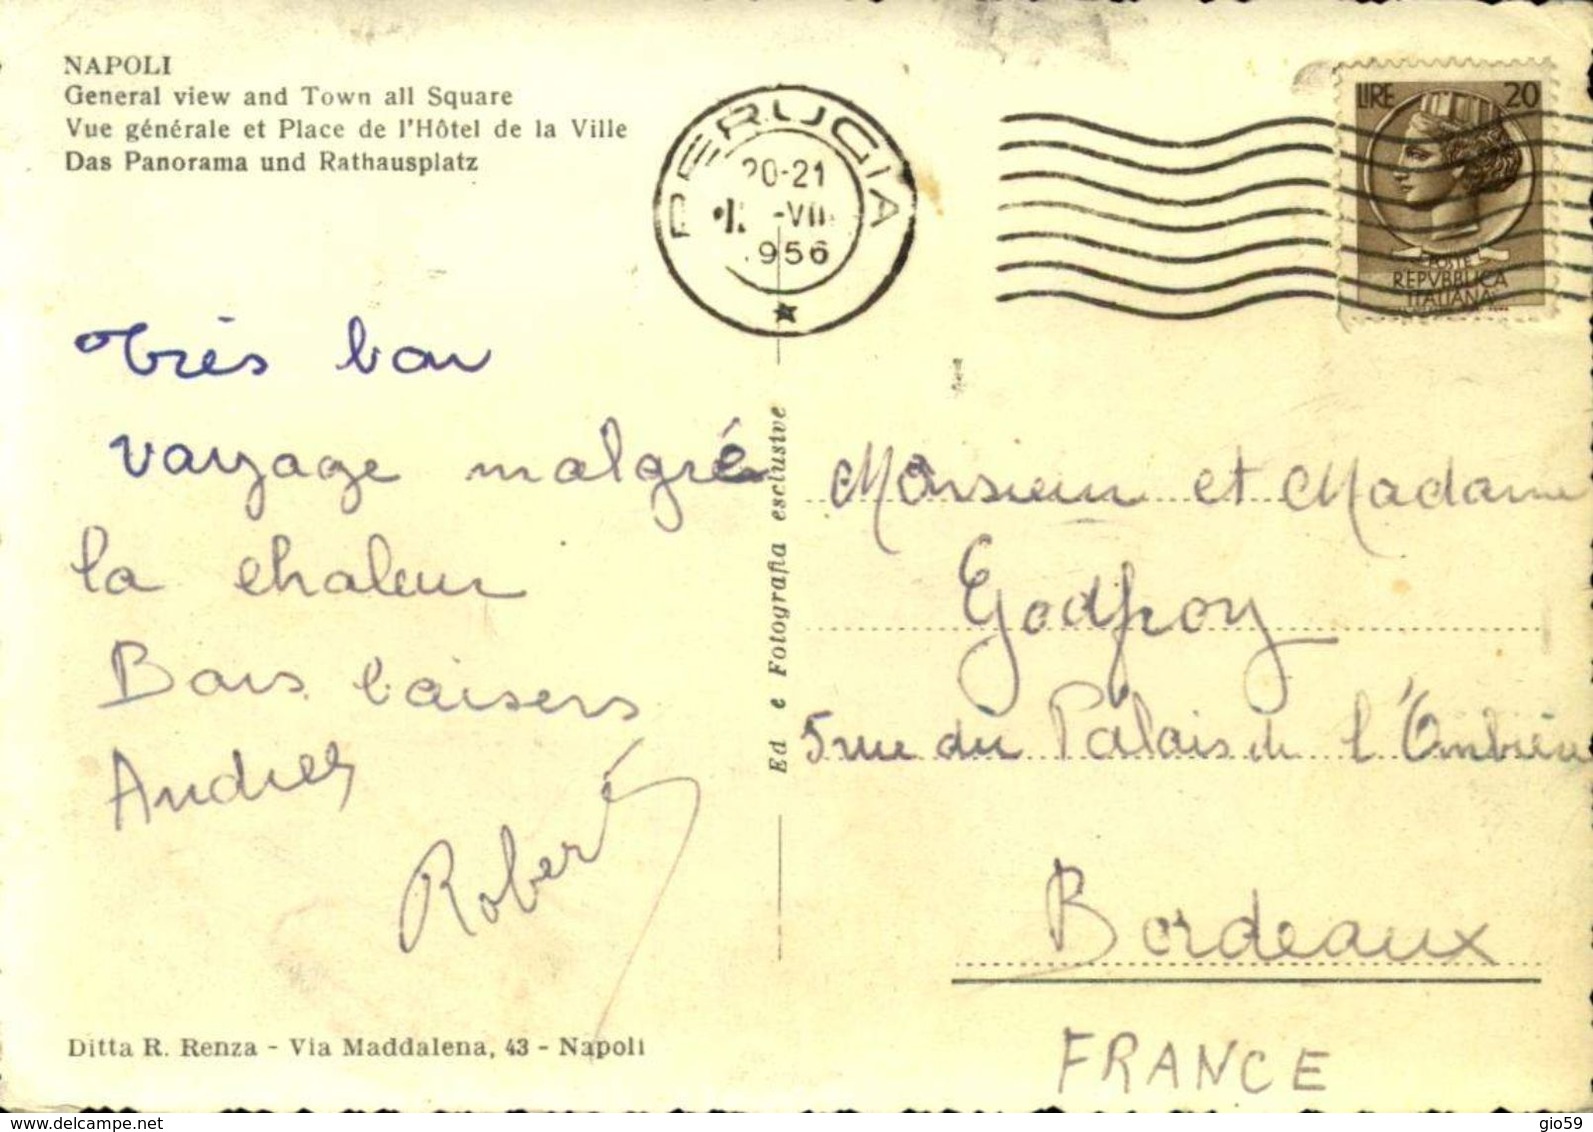 NAPOLI
General view and Town all Square
Vue générale et Place de l'Hôtel de la Ville
Das Panorama und Rathausplatz
PERUGIA
20-21
-VII
956
LIRE 20
POSTE
REPVBBLICA
ITALIANA
Très bon
voyage malgré
la chaleur
Bons baisers
Andrée
Robert
Ed e Fotografia esclusive
Monsieur et Madame
Godfroy
5 rue du Palais de l'Ombrière
Bordeaux
FRANCE
Ditta R. Renza - Via Maddalena, 43 - Napoli
www.delcampe.net
gio59